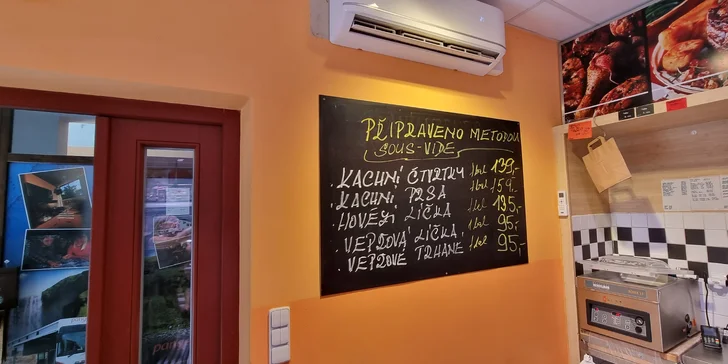 PŘIPRAVENO METODOU
SOUS-VIDE
· KACHNÍ ČTVRTKY 1 bal 139,-
· KACHNÍ PRSA 1 bal 159,-
· HOVĚZÍ LÍČKA 1 bal 195,-
· VEPŘOVÁ LÍČKA 1 bal 95,-
· VEPŘOVÉ TRHANÉ 1 bal 95,-